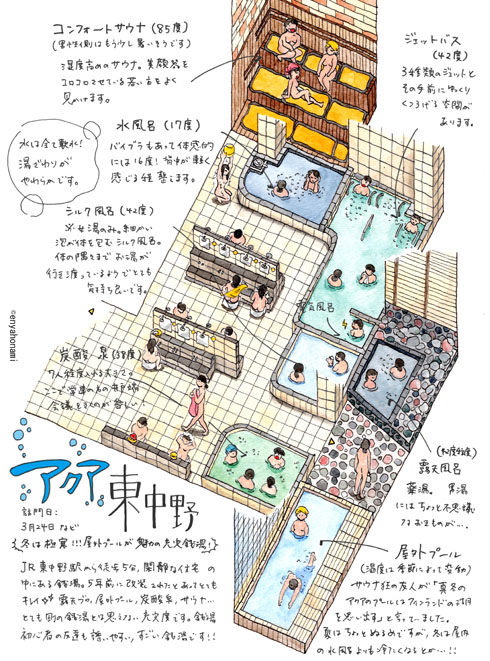 コンフォートサウナ(85度)
(男性側はもう少し暑いそうです)
湿度高めのサウナ。美顔器を
コロコロさせている若い方をよく
見かけます。
ジェットバス
(42度)
3種類のジェットと
その手前にゆっくり
くつろげる空間が
あります。
水は全て軟水!
湯ざわりが
やわらかです。
水風呂(17度)
バイブラもあって体感的
には16度!背中が軽く
感じる程 整えます。
シルク風呂(42度)
※女湯のみ。細かい
泡が体を包むシルク風呂。
体の隅々までお湯が
行き渡っているようでとても
気持ち良いです。
©enyahonami
電気風呂
炭酸 泉(38度)
7人程度入れる大きさ。
ここで常連さんの井戸端
会議をきくのが楽しい!
露天風呂
薬湯。男湯
にはちょっと不思議
なおきものが…
アクア
東中野
訪問日:
3月24日など
冬は極寒!!!屋外プールが魅力の充実銭湯
JR東中野駅から徒歩5分、閑静な住宅の
中にある銭湯。5年前に改装されたとあってとても
キレイ。露天ゾロ、屋外プール、炭酸泉、サウナ…
とても町の銭湯とは思えない充実度です。銭湯
初心者の友達も誘いやすい、すごい銭湯です!!
屋外プール
(温度は季節によって変動)
サウナ狂の友人が「真冬の
アクアのプールはフィンランドの湖
を思います」と言っていました。
夏はちょっとぬるめですが、冬は屋内
の水風呂よりも冷たくなるとか…!!